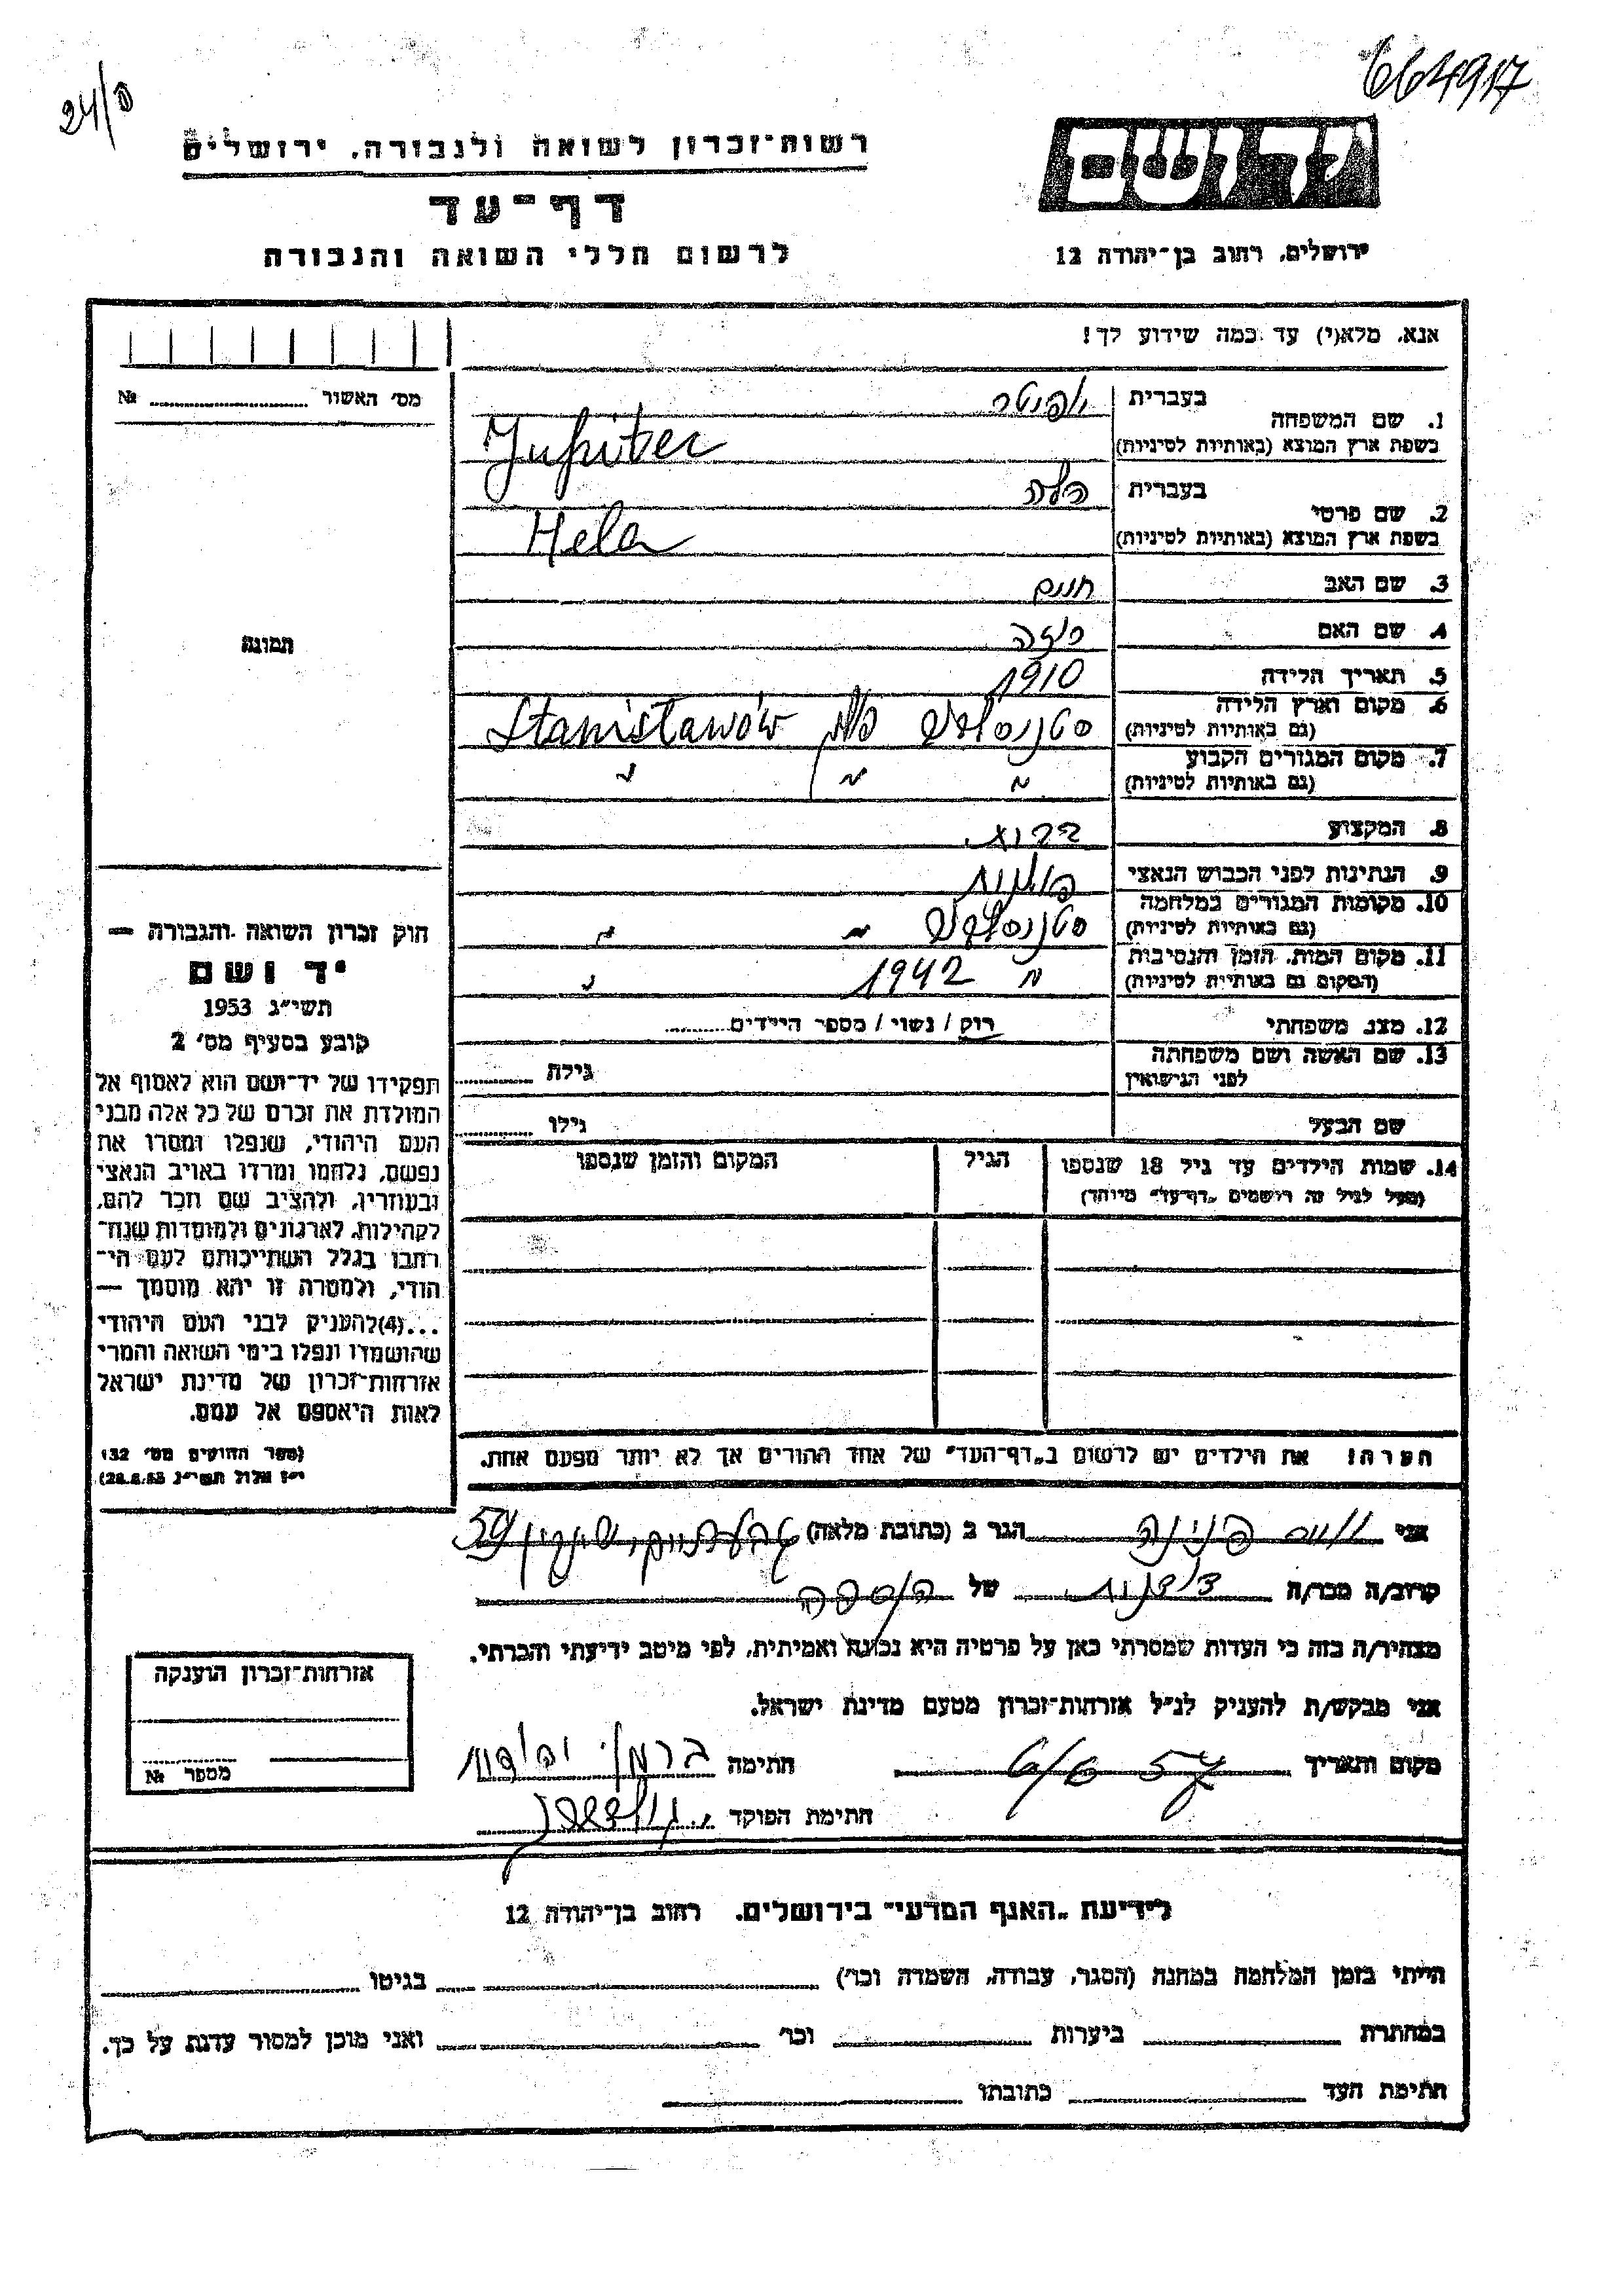 664917
24/ס
רשות־זכרון לשואה ולגבורה, ירושלים
יד ושם
דף־עד
לרשום חללי השואה והגבורה
ירושלים, רחוב בן־יהודה 12
אנא, מלא(י) עד כמה שידוע לך!
מס׳ האשור № 
1. שם המשפחה
בעברית יופיטר
בשפת ארץ המוצא (באותיות לטיניות) Jupiter
2. שם פרטי
בעברית הלה
בשפת ארץ המוצא (באותיות לטיניות) Hela
3. שם האב חיים
4. שם האם
5. תאריך הלידה 1910
6. מקום וארץ הלידה
(גם באותיות לטיניות) סטניסלבוב פולין Stanisławów
7. מקום המגורים הקבוע
(גם באותיות לטיניות) " " "
8. המקצוע
9. הנתינות לפני הכבוש הנאצי פולנית
10. מקומות המגורים במלחמה
(גם באותיות לטיניות) סטניסלבוב " "
11. מקום המות, הזמן והנסיבות
(המקום גם באותיות לטיניות) " 1942 "
12. מצב משפחתי רוק / נשוי / מספר הילדים
13. שם האשה ושם משפחתה
לפני הנישואין
גילה
שם הבעל גילו
14. שמות הילדים עד גיל 18 שנספו
(מעל לגיל זה רושמים „דף־עד״ מיוחד)
הגיל
המקום והזמן שנספו
הערה! את הילדים יש לרשום ב„דף־העד״ של אחד ההורים אך לא יותר מפעם אחת.
תמונה
חוק זכרון השואה והגבורה —
יד ושם
תשי״ג 1953
קובע בסעיף מס׳ 2
תפקידו של יד־ושם הוא לאסוף אל
המולדת את זכרם של כל אלה מבני
העם היהודי, שנפלו ומסרו את
נפשם, נלחמו ומרדו באויב הנאצי
ובעוזריו, ולהציב שם וזכר להם,
לקהילות, לארגונים ולמוסדות שנח־
רבו בגלל השתייכותם לעם הי־
הודי, ולמטרה זו יהא מוסמך —
...(4)להעניק לבני העם היהודי
שהושמדו ונפלו בימי השואה והמרי
אזרחות־זכרון של מדינת ישראל
לאות היאספם אל עמם.
(ספר החוקים מס׳ 132
י״ז אלול תשי״ג 28.8.53)
אני פנינה הגר ב (כתובת מלאה) 59
קרוב/ה מכר/ה של
מצהיר/ה בזה כי העדות שמסרתי כאן על פרטיה היא נכונה ואמיתית, לפי מיטב ידיעתי והכרתי.
אני מבקש/ת להעניק לנ״ל אזרחות־זכרון מטעם מדינת ישראל.
מקום ותאריך 6/6 57 חתימה
חתימת הפוקד
אזרחות־זכרון הוענקה
מספר №
לידיעת „האגף המדעי״ בירושלים. רחוב בן־יהודה 12
הייתי בזמן המלחמה במחנה (הסגר, עבודה, השמדה וכו׳) בגיטו
במחתרת ביערות וכו׳ ואני מוכן למסור עדות על כך.
חתימת העד כתובתו